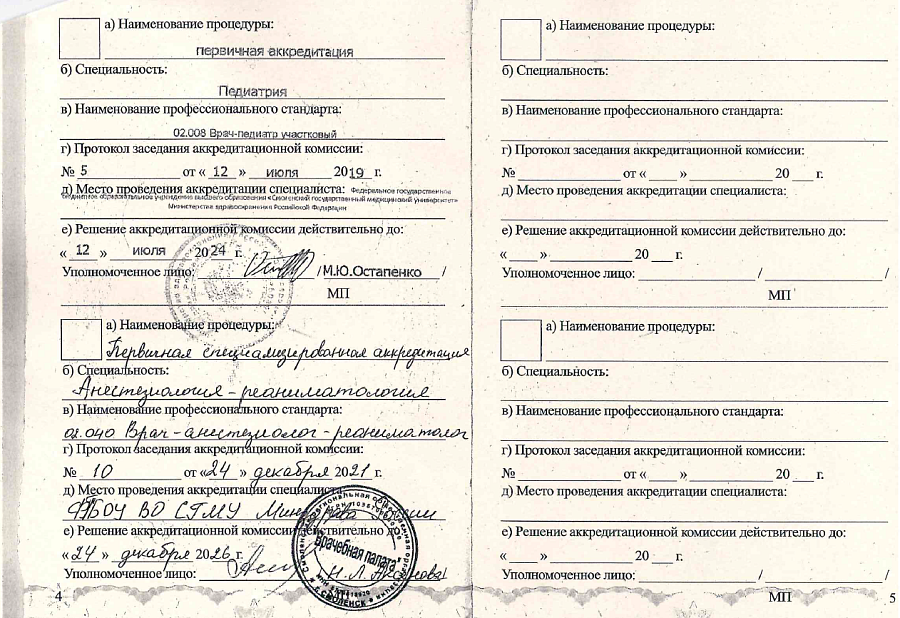 а) Наименование процедуры:
первичная аккредитация
б) Специальность:
Педиатрия
в) Наименование профессионального стандарта:
02.008 Врач-педиатр участковый
г) Протокол заседания аккредитационной комиссии:
№ 5 от « 12 » июля 2019 г.
д) Место проведения аккредитации специалиста: Федеральное государственное
бюджетное образовательное учреждение высшего образования «Смоленский государственный медицинский университет»
Министерства здравоохранения Российской Федерации
е) Решение аккредитационной комиссии действительно до:
« 12 » июля 2024 г.
Уполномоченное лицо: / М.Ю.Остапенко /
МП
а) Наименование процедуры:
Первичная специализированная аккредитация
б) Специальность:
Анестезиология-реаниматология
в) Наименование профессионального стандарта:
02.040 Врач-анестезиолог-реаниматолог
г) Протокол заседания аккредитационной комиссии:
№ 10 от «24» декабря 2021 г.
д) Место проведения аккредитации специалиста:
ФГБОУ ВО СГМУ Минздрава России
е) Решение аккредитационной комиссии действительно до:
«24» декабря 2026 г.
Уполномоченное лицо: Н.Л.
Врачебная палата
г. СМОЛЕНСК
4
а) Наименование процедуры:
б) Специальность:
в) Наименование профессионального стандарта:
г) Протокол заседания аккредитационной комиссии:
№ от « » 20 г.
д) Место проведения аккредитации специалиста:
е) Решение аккредитационной комиссии действительно до:
« » 20 г.
Уполномоченное лицо: / /
МП
а) Наименование процедуры:
б) Специальность:
в) Наименование профессионального стандарта:
г) Протокол заседания аккредитационной комиссии:
№ от « » 20 г.
д) Место проведения аккредитации специалиста:
е) Решение аккредитационной комиссии действительно до:
« » 20 г.
Уполномоченное лицо: / /
МП
5